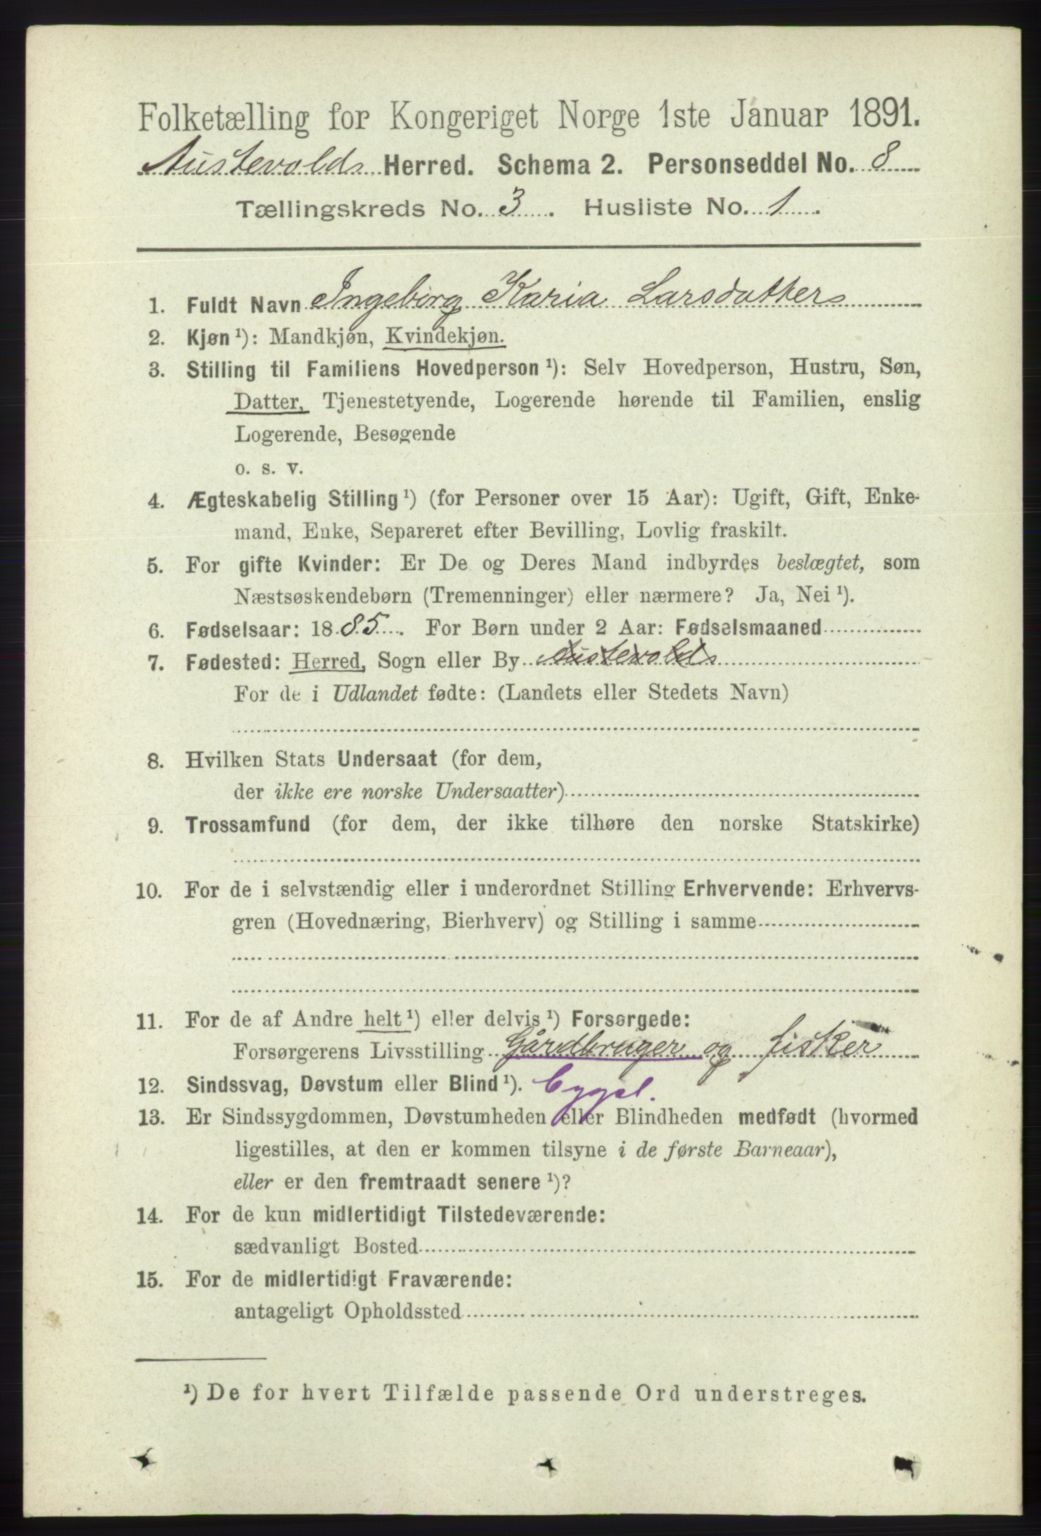 Folketælling for Kongeriget Norge 1ste Januar 1891.
Austevolds Herred. Schema 2. Personseddel No. 8
Tællingskreds No. 3. Husliste No. 1.
1. Fuldt Navn Ingeborg Karia Larsdatter
2. Kjøn¹): Mandkjøn, Kvindekjøn.
3. Stilling til Familiens Hovedperson¹): Selv Hovedperson, Hustru, Søn,
Datter, Tjenestetyende, Logerende hørende til Familien, enslig
Logerende, Besøgende
o. s. v.
4. Ægteskabelig Stilling¹) (for Personer over 15 Aar): Ugift, Gift, Enke-
mand, Enke, Separeret efter Bevilling, Lovlig fraskilt.
5. For gifte Kvinder: Er De og Deres Mand indbyrdes beslægtet, som
Næstsøskendebørn (Tremenninger) eller nærmere? Ja, Nei¹).
6. Fødselsaar: 1885. For Børn under 2 Aar: Fødselsmaaned
7. Fødested: Herred, Sogn eller By Austevolds
For de i Udlandet fødte: (Landets eller Stedets Navn)
8. Hvilken Stats Undersaat (for dem,
der ikke ere norske Undersaatter)
9. Trossamfund (for dem, der ikke tilhøre den norske Statskirke)
10. For de i selvstændig eller i underordnet Stilling Erhvervende: Erhvervs-
gren (Hovednæring, Bierhverv) og Stilling i samme
11. For de af Andre helt¹) eller delvis¹) Forsørgede:
Forsørgerens Livsstilling Gårdbruger og fisker
12. Sindssvag, Døvstum eller Blind¹).
13. Er Sindssygdommen, Døvstumheden eller Blindheden medfødt (hvormed
ligestilles, at den er kommen tilsyne i de første Barneaar),
eller er den fremtraadt senere¹)?
14. For de kun midlertidigt Tilstedeværende:
sædvanligt Bosted
15. For de midlertidigt Fraværende:
antageligt Opholdssted
¹) De for hvert Tilfælde passende Ord understreges.